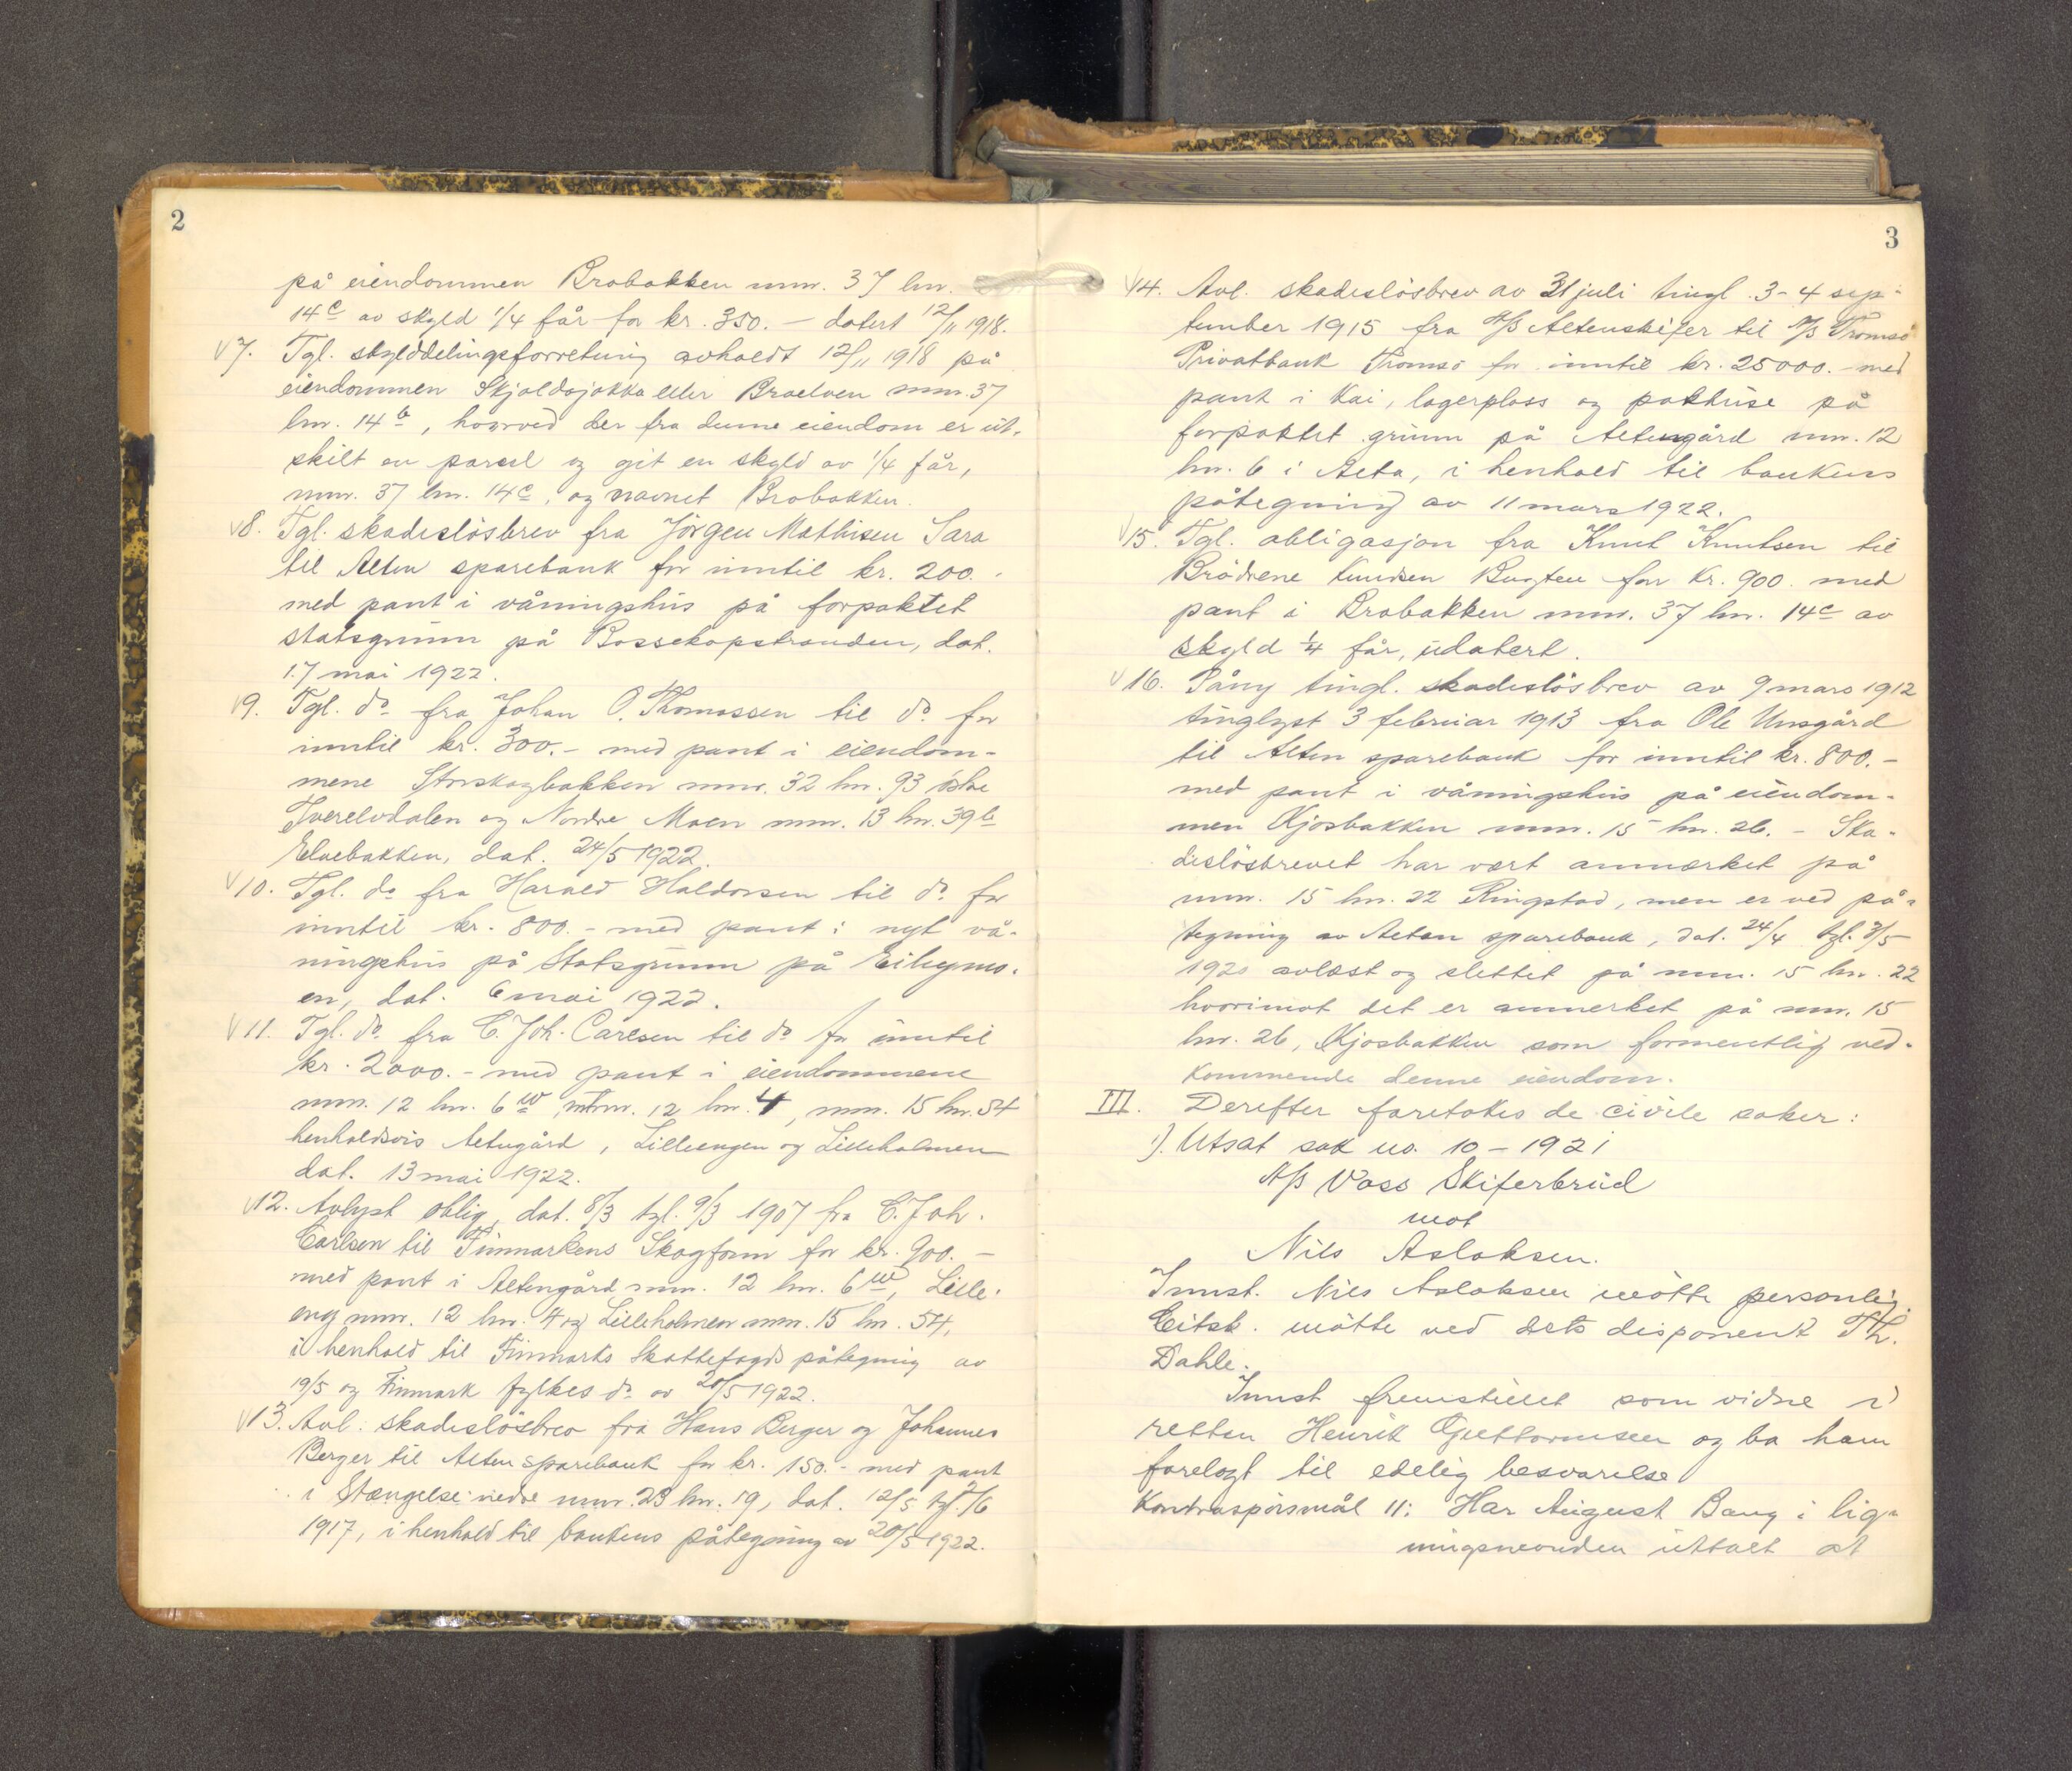 2
på eiendommen Brobakken mnr. 37 lnr.
14c av skyld 1/4 får for kr. 350.- datert 12/11 1918.
7. Tgl. skylddelingsforretning avholdt 12/11 1918 på
eiendommen Skjoldajokka eller Broelven mnr. 37
lnr. 14b, hvorved der fra denne eiendom er ut-
skilt en parsel og git en skyld av 1/4 får,
mnr. 37 lnr. 14c, og navnet Brobakken.
8. Tgl. skadeslösbrev fra Jörgen Mathisen Sara
til Alten sparebank for inntil kr. 200.-
med pant i våningshus på forpaktet
statsgrunn på Bossekopstranden, dat.
17 mai 1922.
9. Tgl. do fra Johan O. Thomassen til do for
inntil kr. 300.- med pant i eiendom-
mene Storskogbakken mnr. 32 lnr. 93 östre
Tverelvdalen og Nordre Moen mnr. 13 lnr. 39b
Elvebakken, dat. 24/5 1922.
10. Tgl. do fra Harald Haldorsen til do for
inntil kr. 800.- med pant i nyt vå-
ningshus på Statsgrunn på
en, dat. 6 mai 1922.
11. Tgl. do fra C. Joh. Carlsen til do for inntil
kr. 2000.- med pant i eiendommene
mnr. 12 lnr. 6w, mnr. 12 lnr. 4, mnr. 15 lnr. 54
henholdsvis Altengård, Lilleengen og Lilleholmen
dat. 13 mai 1922.
12. Avlyst oblig, dat. 8/3 tgl. 9/3 1907 fra C. Joh.
Carlsen til Finnmarkens Skogforv for kr. 900.-
med pant i Altengård mnr. 12 lnr. 6w, Lille-
eng mnr. 12 lnr. 4 og Lilleholmen mnr. 15 lnr. 54,
i henhold til Finmarks Skattefogds påtegning av
19/5 og Finmark fylkes do av 20/5 1922.
13. Avl. skadeslösbrev fra Hans Berger og Johannes
Berger til Alten sparebank for kr. 150.- med pant
i Stengelse nedre mnr. 23 lnr. 19, dat. 12/5 tgl. 2/6
1917, i henhold til bankens påtegning av 20/5 1922.
3
14. Avl. skadeslösbrev av 31 juli tingl. 3-4 sep-
tember 1915 fra A/S Altenskifer til A/S Tromsö
Privatbank Tromsö for inntil kr. 25000.- med
pant i Kai, lagerplass og pakhuse på
forpaktet grunn på Altengård mnr. 12
lnr. 6 i Alta, i henhold til bankens
påtegning av 11 mars 1922.
15. Tgl. obligasjon fra Knut Knutsen til
Brödrene Bugten for kr. 900. med
pant i Brobakken mnr. 37 lnr. 14c av
skyld 1/4 får, udatert.
16. Påny tingl. skadeslösbrev av 9 mars 1912
tinglyst 3 februar 1913 fra Ole Unsgård
til Alten sparebank for inntil kr. 800.-
med pant i våningshus på eiendom-
men Kjosbakken mnr. 15 lnr. 26. - Ska-
deslösbrevet har vært anmerket på
mnr. 15 lnr. 22 Ringstad, men er ved på-
tegning av Alten sparebank, dat. 24/4 tgl. 3/5
1920 avlæst og slettet på mnr. 15 lnr. 22
hvorimot det er anmerket på mnr. 15
lnr. 26, Kjosbakken som formentlig ved-
kommende denne eiendom.
III. Derefter foretokes de civile saker:
1). Utsat sak no. 10 - 1921
A/S Voss Skiferbrud
mot
Nils Aslaksen.
Innst. Nils Aslaksen mötte personlig.
Citsk. mötte ved dets disponent Th.
Dahle.
Innst fremstillet som vidne i
retten Henrik Guttormsen og ba ham
forelagt til edelig besvarelse
Kontraspörsmål 11: Har August Bang i lig-
ningsnevnden uttalt at